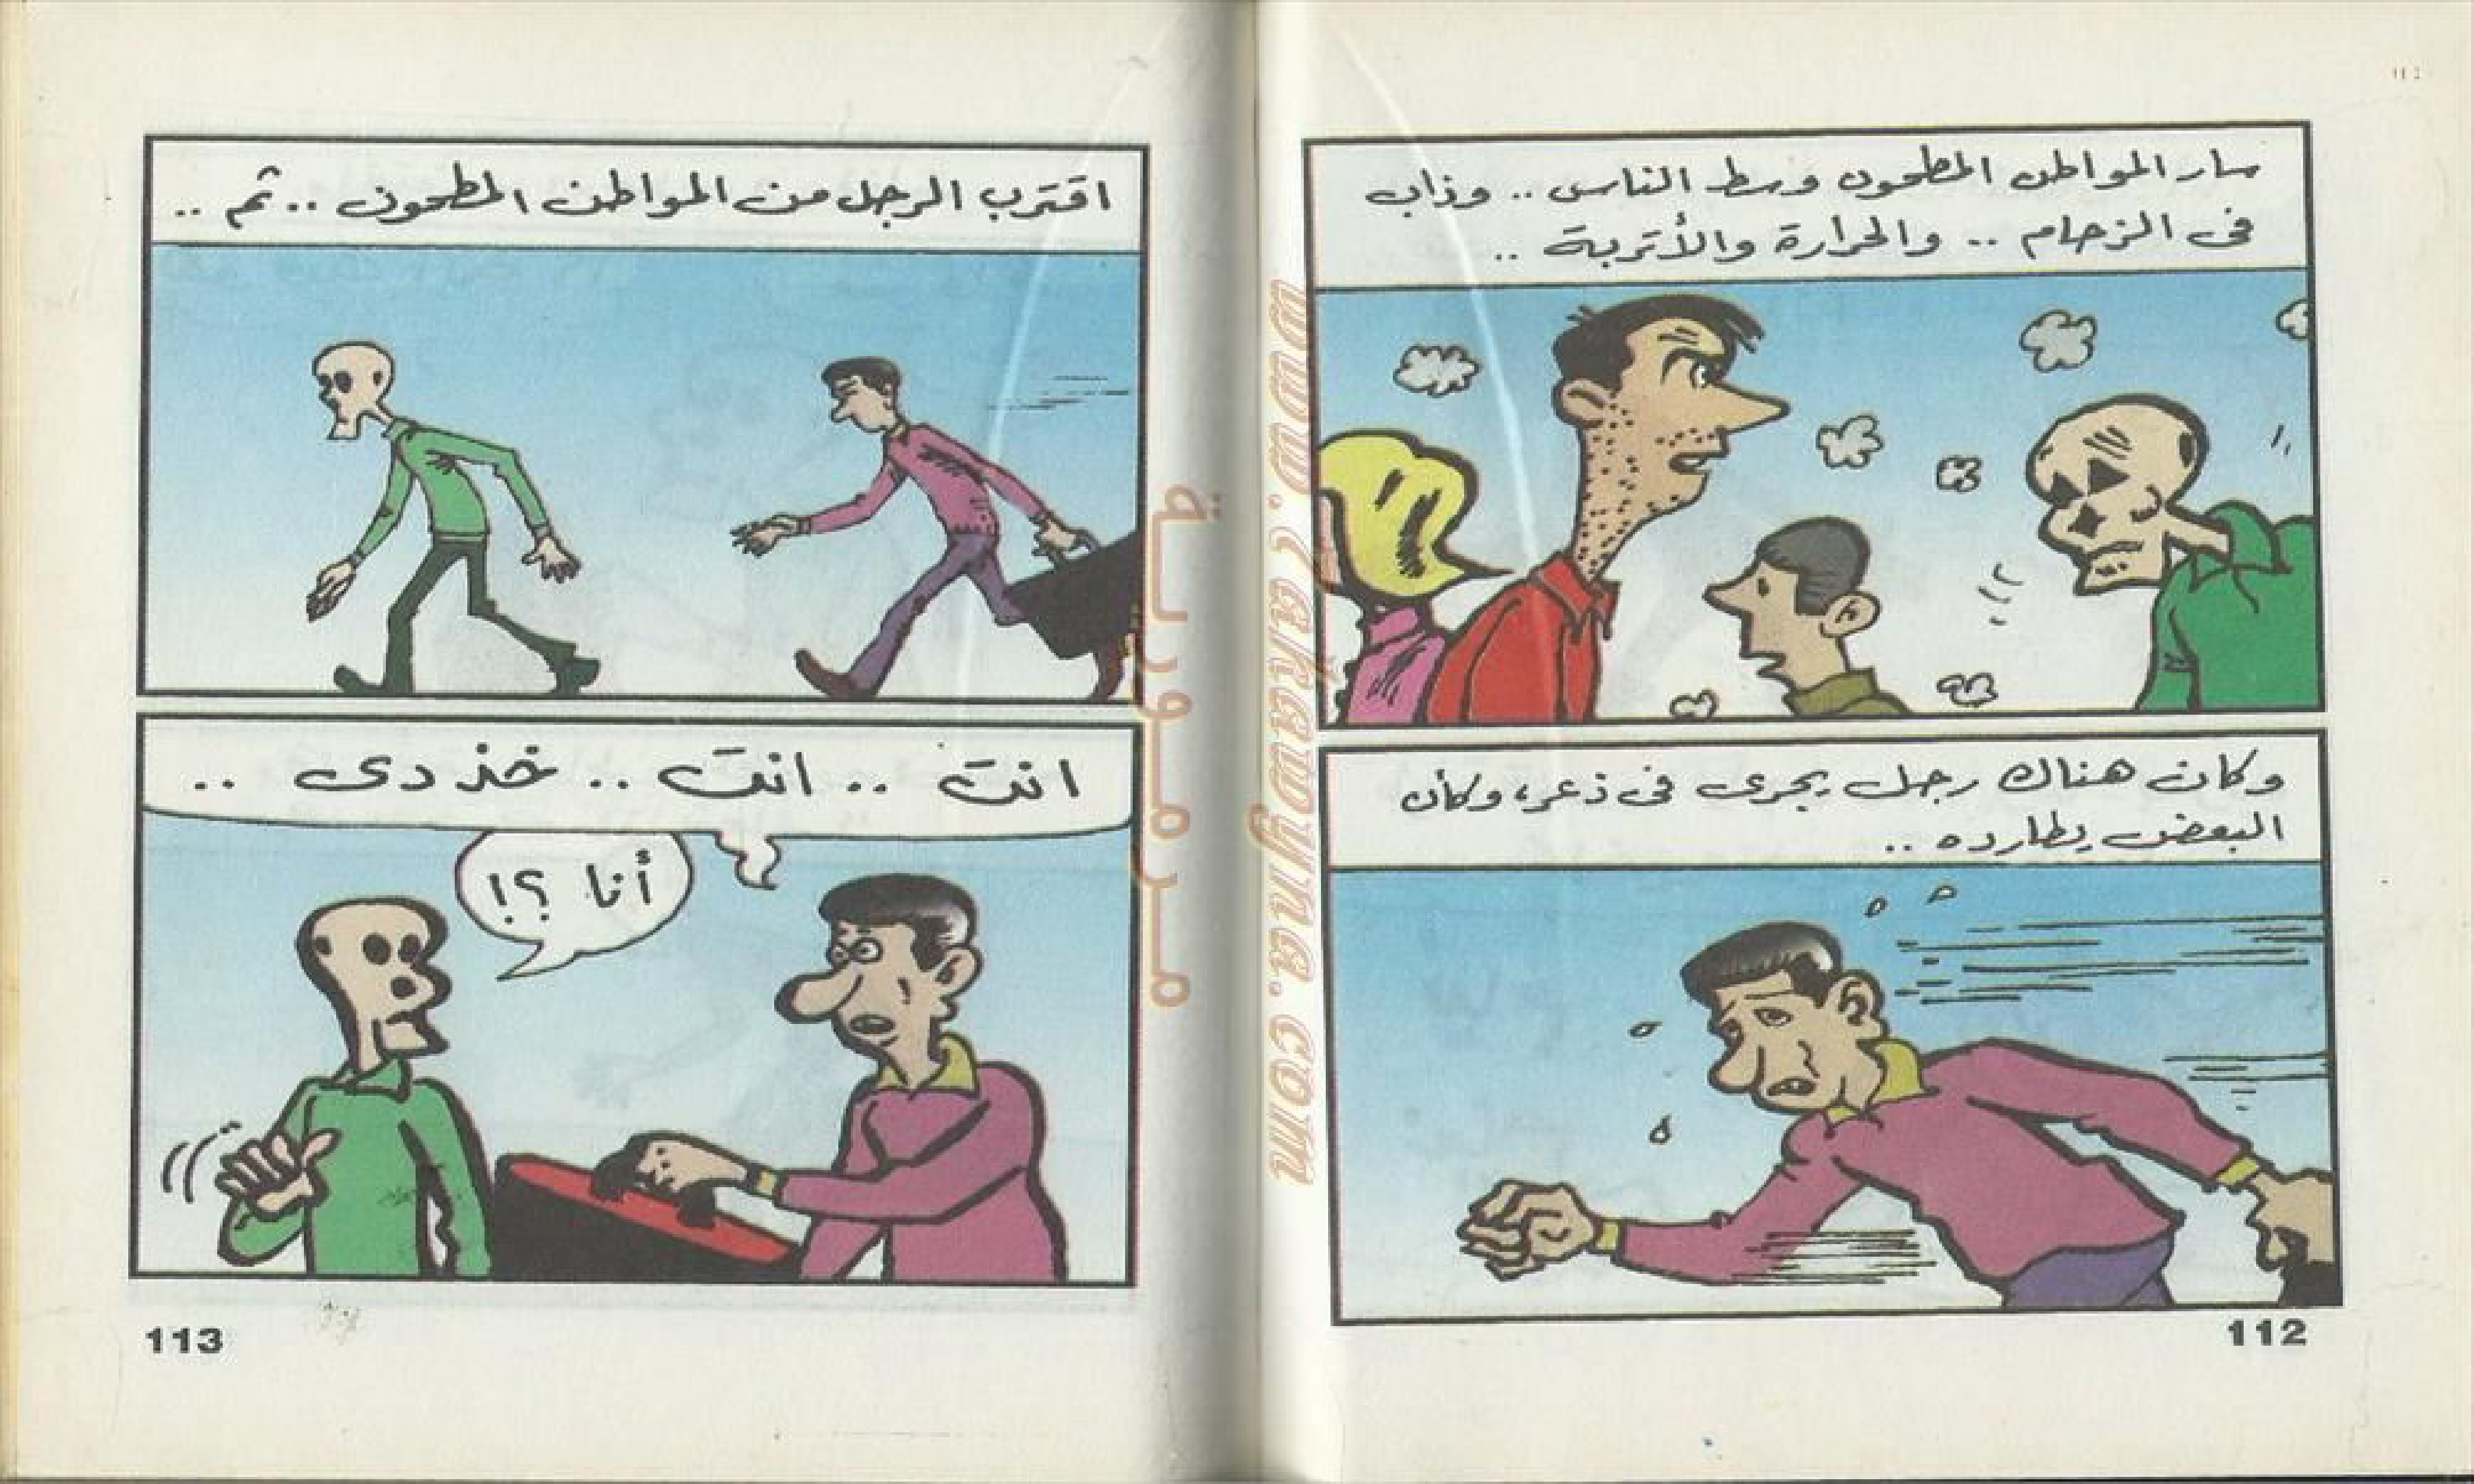 سار المواطن المطحون وسط الناس .. وذاب
فى الزحام .. والحرارة والأتربة ..
وكان هناك رجل يجرى فى ذعر، وكأن
البعض يطارده ..
112
اقترب الرجل من المواطن المطحون .. ثم ..
انت .. انت .. خذ دى ..
أنا ؟!
113
مرمورية
www.7akawyna.com